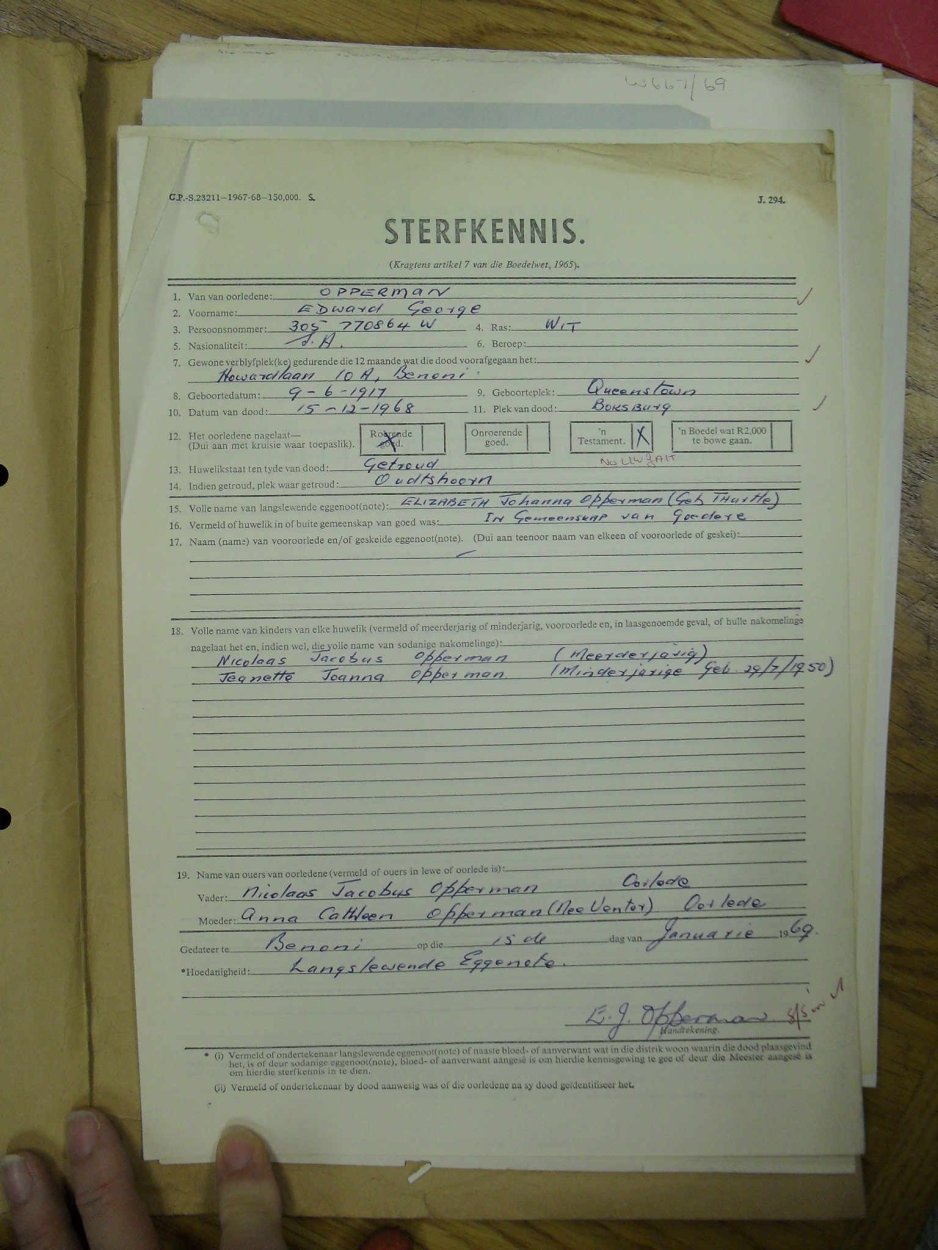 W667/69
G.P.-S.23211—1967-68—150,000. S. J. 294.
STERFKENNIS.
(Kragtens artikel 7 van die Boedelwet, 1965).
1. Van van oorledene: OPPERMAN
2. Voorname: EDward George
3. Persoonsnommer: 305 770864 W 4. Ras: WIT
5. Nasionaliteit: S.A. 6. Beroep:
7. Gewone verblyfplek(ke) gedurende die 12 maande wat die dood voorafgegaan het:
Howardlaan 10A, Benoni.
8. Geboortedatum: 9-6-1917 9. Geboorteplek: Queenstown
10. Datum van dood: 15-12-1968 11. Plek van dood: Boksburg
12. Het oorledene nagelaat— (Dui aan met kruisie waar toepaslik). Roerende goed. X Onroerende goed. 'n Testament. X 'n Boedel wat R2,000 te bowe gaan.
13. Huwelikstaat ten tyde van dood: Getroud
14. Indien getroud, plek waar getroud: Oudtshoorn
15. Volle name van langslewende eggenoot(note): ELIZABETH Johanna Opperman (Geb. Thurtle)
16. Vermeld of huwelik in of buite gemeenskap van goed was: In Gemeenskap van Goedere
17. Naam (name) van vooroorlede en/of geskeide eggenoot(note). (Dui aan teenoor naam van elkeen of vooroorlede of geskei):
18. Volle name van kinders van elke huwelik (vermeld of meerderjarig of minderjarig, vooroorlede en, in laasgenoemde geval, of hulle nakomelinge
nagelaat het en, indien wel, die volle name van sodanige nakomelinge):
Nicolaas Jacobus Opperman (Meerderjarig)
Jeanette Joanna Opperman (Minderjarige Geb. 29/7/1950)
19. Name van ouers van oorledene (vermeld of ouers in lewe of oorlede is):
Vader: Nicolaas Jacobus Opperman Oorlede
Moeder: Anna Cathleen Opperman (Nee Venter) Oorlede
Gedateer te Benoni op die 15 de dag van Januarie 1969.
*Hoedanigheid: Langslewende Eggenote.
E. J. Opperman
Handtekening.
* (i) Vermeld of ondertekenaar langslewende eggenoot(note) of naaste bloed- of aanverwant wat in die distrik woon waarin die dood plaasgevind
het, is of deur sodanige eggenoot(note), bloed- of aanverwant aangesê is om hierdie kennisgewing te gee of deur die Meester aangesê is
om hierdie sterfkennis in te dien.
(ii) Vermeld of ondertekenaar by dood aanwesig was of die oorledene na sy dood geïdentifiseer het.